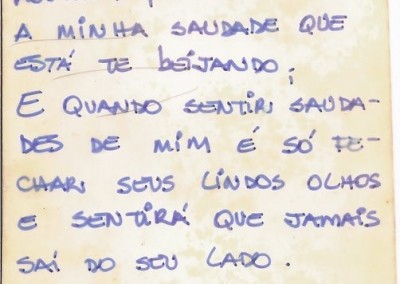 A MINHA SAUDADE QUE
ESTÁ TE BEIJANDO;
E QUANDO SENTIR SAUDA-
DES DE MIM É SÓ FE-
CHAR SEUS LINDOS OLHOS
E SENTIRÁ QUE JAMAIS
SAÍ DO SEU LADO.